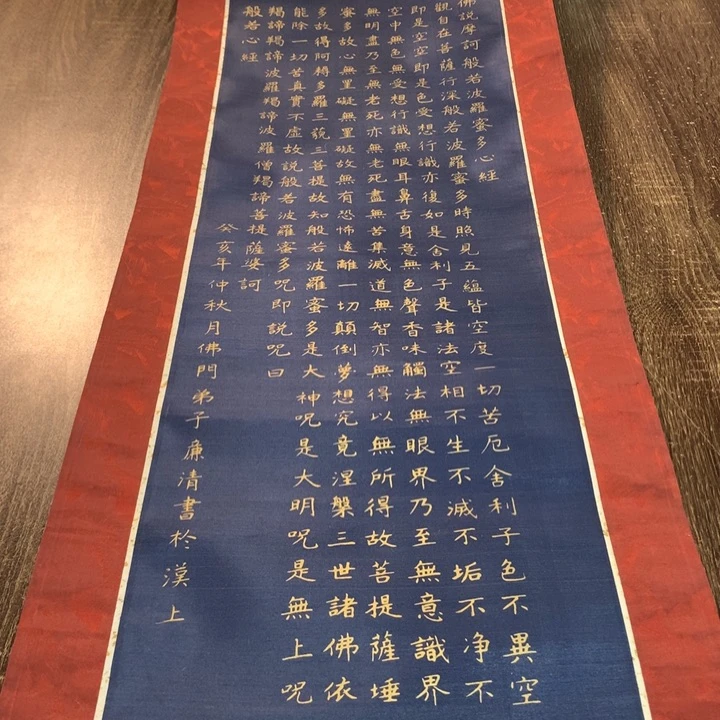 佛說摩訶般若波羅蜜多心經
觀自在菩薩行深般若波羅蜜多時照見五蘊皆空度一切苦厄舍利子色不異空
即是空空即是色受想行識亦復如是舍利子是諸法空相不生不滅不垢不净不
空中無色無受想行識無眼耳鼻舌身意無色聲香味觸法無眼界乃至無意識界
無明盡乃至無老死亦無老死盡無苦集滅道無智亦無得以無所得故菩提薩埵
蜜多故心無罣礙無罣礙故無有恐怖遠離一切顛倒夢想究竟涅槃三世諸佛依
多故得阿耨多羅三藐三菩提故知般若波羅蜜多是大神呪是大明呪是無上呪
能除一切苦真實不虛故說般若波羅蜜多呪即說呪曰
羯諦羯諦波羅羯諦波羅僧羯諦菩提薩婆訶
般若心經
癸亥年仲秋月佛門弟子廉清書於漢上